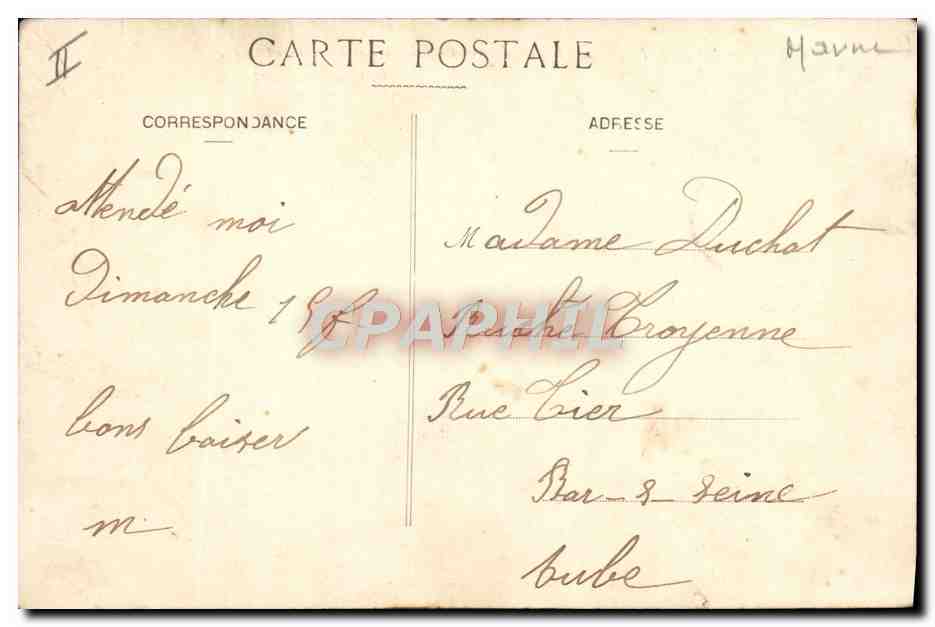 II
CARTE POSTALE
Marne
CORRESPONDANCE
attendé moi
Dimanche
bons baiser
m.
ADRESSE
Madame Duchat
Ruche Troyenne
Rue Tier
Bar-s-seine
Aube
CPAPHIL